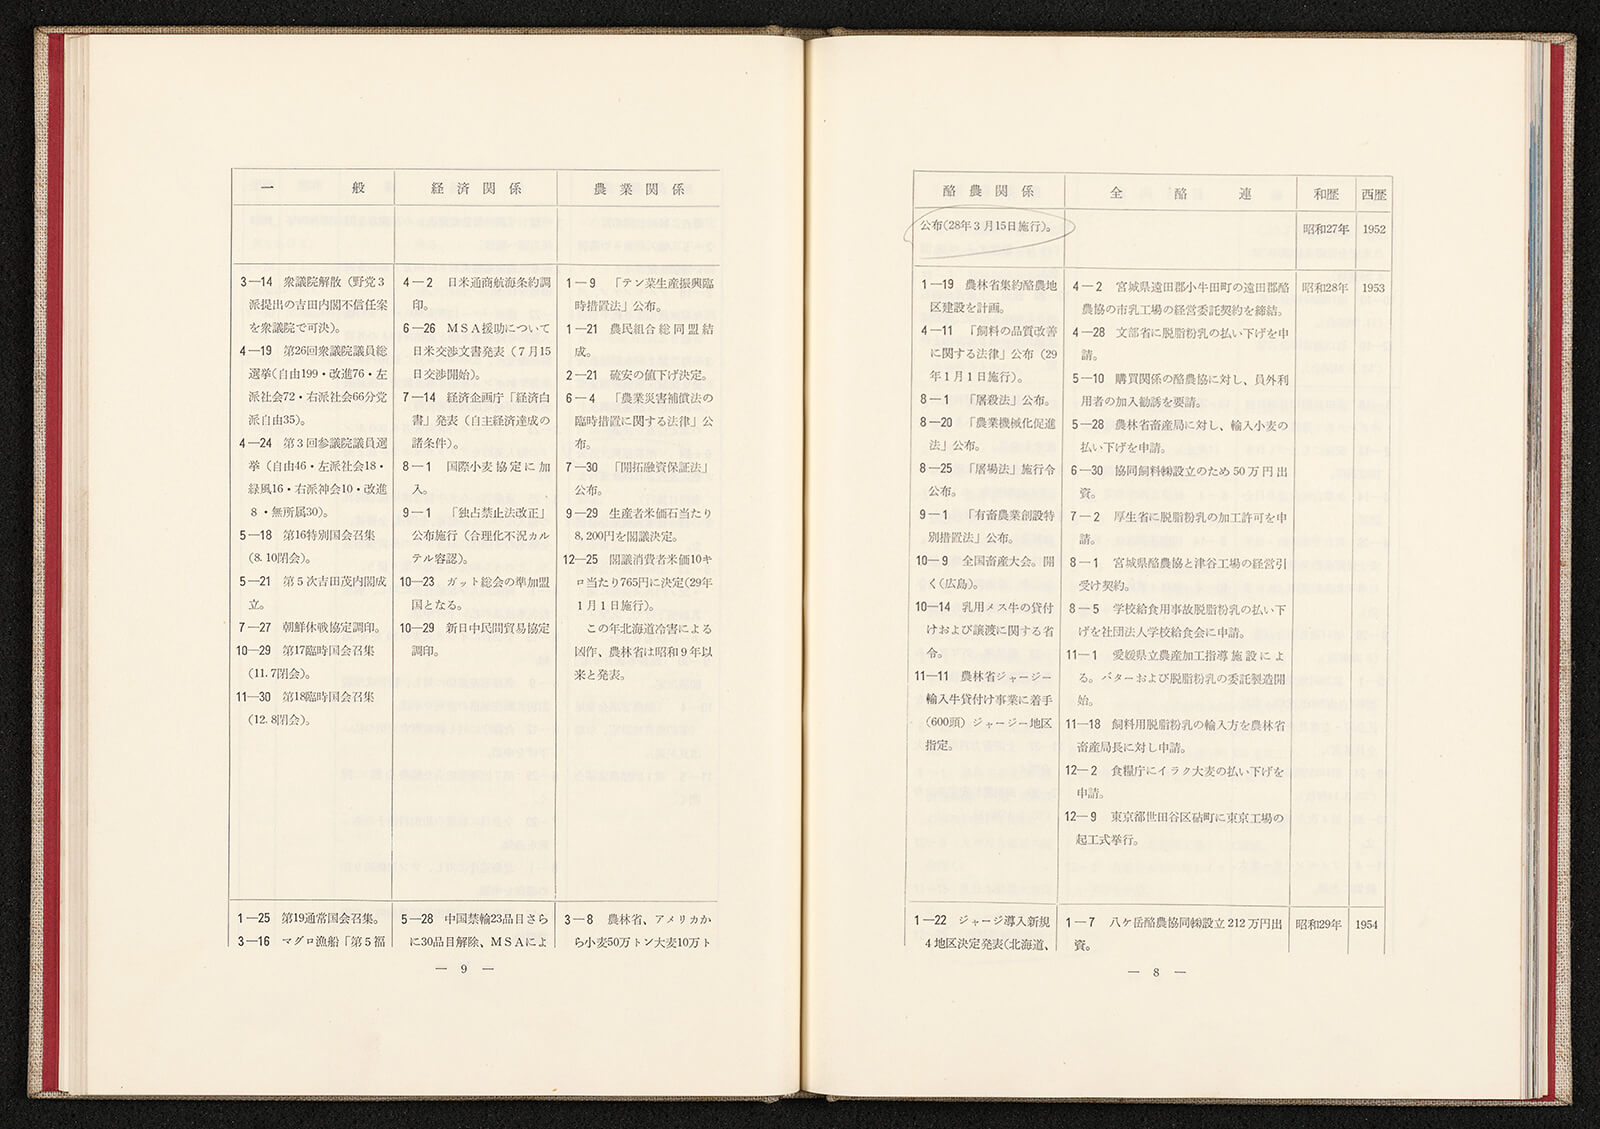 酪農関係
公布(28年3月15日施行)。
1—19 農林省集約酪農地
区建設を計画。
4—11 「飼料の品質改善
に関する法律」公布(29
年1月1日施行)。
8—1 「屠殺法」公布。
8—20 「農業機械化促進
法」公布。
8—25 「屠場法」施行令
公布。
9—1 「有畜農業創設特
別措置法」公布。
10—9 全国畜産大会。開
く(広島)。
10—14 乳用メス牛の貸付
けおよび譲渡に関する省
令。
11—11 農林省ジャージー
輸入牛貸付け事業に着手
(600頭)ジャージー地区
指定。
1—22 ジャージ導入新規
4地区決定発表(北海道、
全酪連
4—2 宮城県遠田郡小牛田町の遠田郡酪
農協の市乳工場の経営委託契約を締結。
4—28 文部省に脱脂粉乳の払い下げを申
請。
5—10 購買関係の酪農協に対し、員外利
用者の加入勧誘を要請。
5—28 農林省畜産局に対し、輸入小麦の
払い下げを申請。
6—30 協同飼料㈱設立のため50万円出
資。
7—2 厚生省に脱脂粉乳の加工許可を申
請。
8—1 宮城県酪農協と津谷工場の経営引
受け契約。
8—5 学校給食用事故脱脂粉乳の払い下
げを社団法人学校給食会に申請。
11—1 愛媛県立農産加工指導施設によ
る。バターおよび脱脂粉乳の委託製造開
始。
11—18 飼料用脱脂粉乳の輸入方を農林省
畜産局長に対し申請。
12—2 食糧庁にイラク大麦の払い下げを
申請。
12—9 東京都世田谷区砧町に東京工場の
起工式挙行。
1—7 八ケ岳酪農協同㈱設立212万円出
資。
和歴
昭和27年
昭和28年
昭和29年
西歴
1952
1953
1954
— 8 —
一般
3—14 衆議院解散(野党3
派提出の吉田内閣不信任案
を衆議院で可決)。
4—19 第26回衆議院議員総
選挙(自由199・改進76・左
派社会72・右派社会66分党
派自由35)。
4—24 第3回参議院議員選
挙(自由46・左派社会18・
緑風16・右派神会10・改進
8・無所属30)。
5—18 第16特別国会召集
(8.10閉会)。
5—21 第5次吉田茂内閣成
立。
7—27 朝鮮休戦協定調印。
10—29 第17臨時国会召集
(11.7閉会)。
11—30 第18臨時国会召集
(12.8閉会)。
1—25 第19通常国会召集。
3—16 マグロ漁船「第5福
経済関係
4—2 日米通商航海条約調
印。
6—26 MSA援助について
日米交渉文書発表(7月15
日交渉開始)。
7—14 経済企画庁「経済白
書」発表(自主経済達成の
諸条件)。
8—1 国際小麦協定に加
入。
9—1 「独占禁止法改正」
公布施行(合理化不況カル
テル容認)。
10—23 ガット総会の準加盟
国となる。
10—29 新日中民間貿易協定
調印。
5—28 中国禁輸23品目さら
に30品目解除、MSAによ
農業関係
1—9 「テン菜生産振興臨
時措置法」公布。
1—21 農民組合総同盟結
成。
2—21 硫安の値下げ決定。
6—4 「農業災害補償法の
臨時措置に関する法律」公
布。
7—30 「開拓融資保証法」
公布。
9—29 生産者米価石当たり
8,200円を閣議決定。
12—25 閣議消費者米価10キ
ロ当たり765円に決定(29年
1月1日施行)。
この年北海道冷害による
凶作、農林省は昭和9年以
来と発表。
3—8 農林省、アメリカか
ら小麦50万トン大麦10万ト
— 9 —